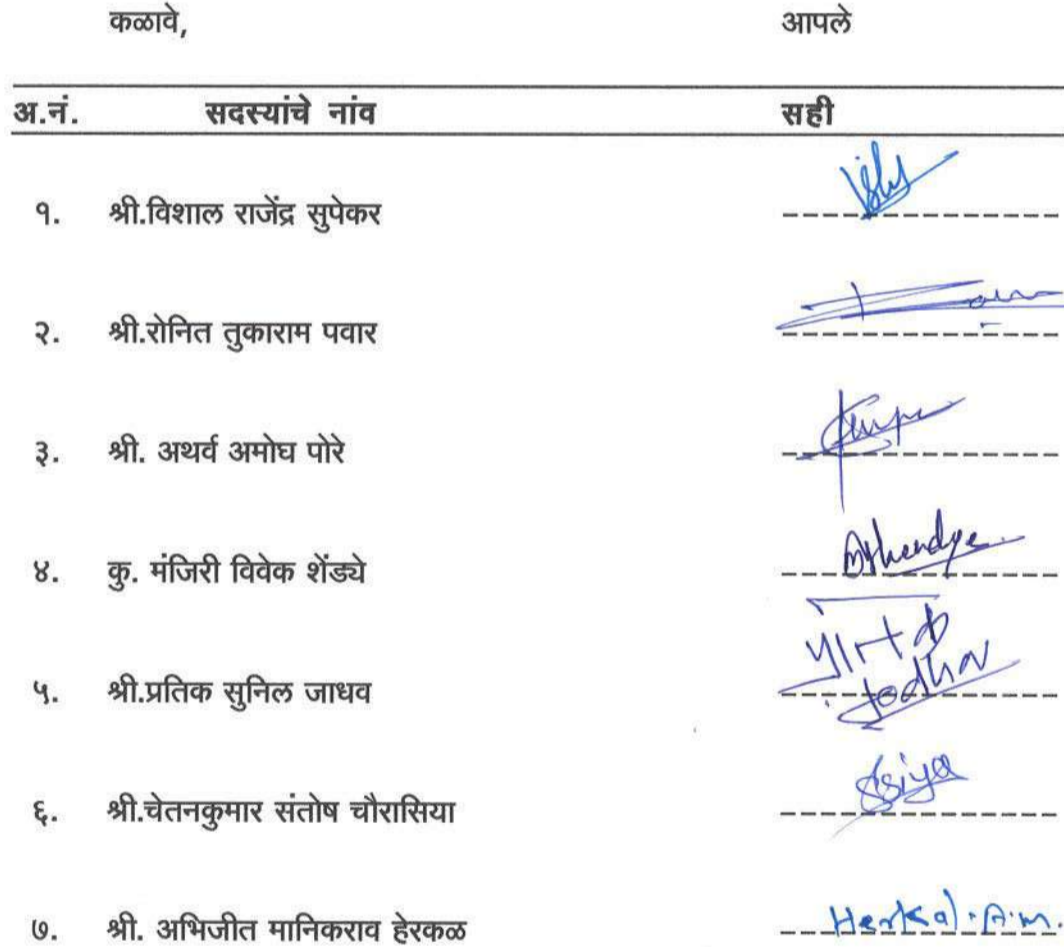 कळावे, आपले
अ.नं. सदस्यांचे नांव सही
१. श्री.विशाल राजेंद्र सुपेकर
२. श्री.रोनित तुकाराम पवार
३. श्री. अथर्व अमोघ पोरे
४. कु. मंजिरी विवेक शेंड्ये Mshendye.
५. श्री.प्रतिक सुनिल जाधव
६. श्री.चेतनकुमार संतोष चौरासिया
७. श्री. अभिजीत मानिकराव हेरकळ Herkal.A.M.